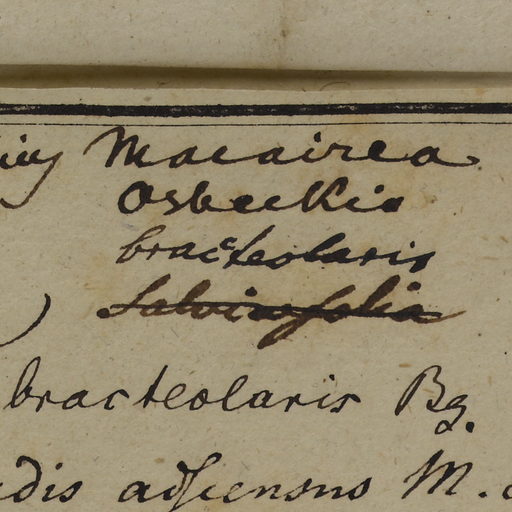 Macairea
Osbeckia
bracteolaris
salviaefolia
bracteolaris Bg.
adscensus M.